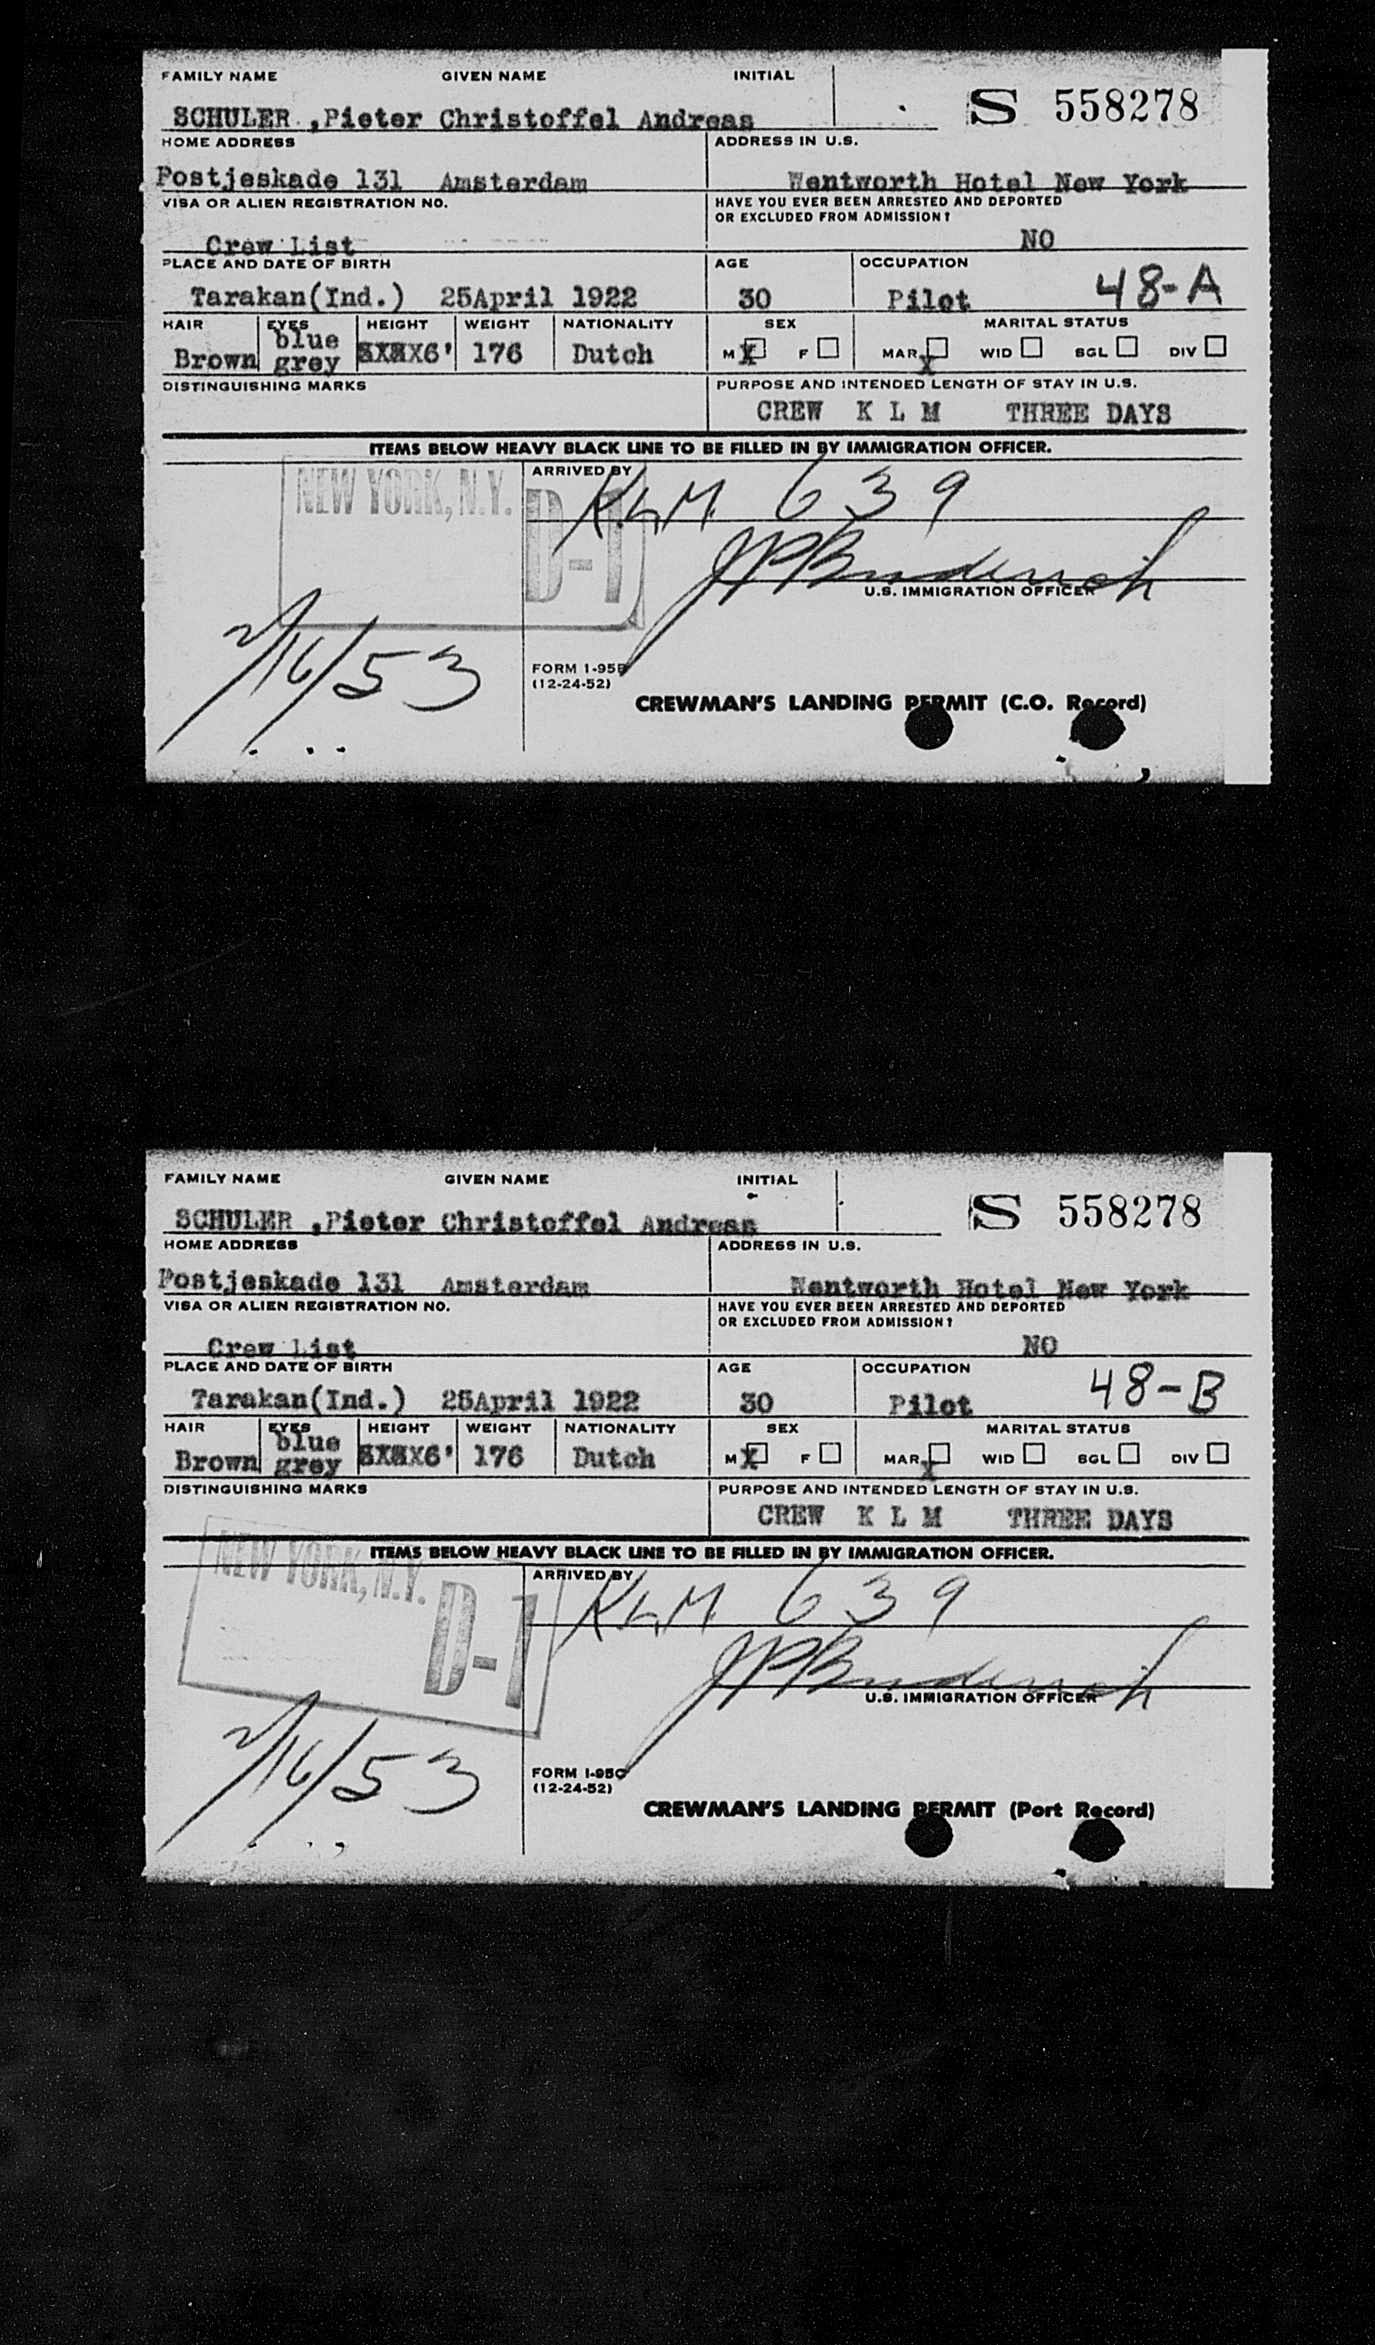 FAMILY NAME GIVEN NAME INITIAL
S 558278
SCHULER ,Pieter Christoffel Andreas
HOME ADDRESS ADDRESS IN U.S.
Postjeskade 131 Amsterdam Wentworth Hotel New York
VISA OR ALIEN REGISTRATION NO. HAVE YOU EVER BEEN ARRESTED AND DEPORTED
OR EXCLUDED FROM ADMISSION?
Crew List NO
PLACE AND DATE OF BIRTH AGE OCCUPATION
Tarakan(Ind.) 25April 1922 30 Pilot 48-A
HAIR EYES HEIGHT WEIGHT NATIONALITY SEX MARITAL STATUS
blue
Brown grey 6' 176 Dutch M X F MAR X WID SGL DIV
DISTINGUISHING MARKS PURPOSE AND INTENDED LENGTH OF STAY IN U.S.
CREW K L M THREE DAYS
ITEMS BELOW HEAVY BLACK LINE TO BE FILLED IN BY IMMIGRATION OFFICER.
NEW YORK, N.Y. ARRIVED BY
KLM 639
D-1
U.S. IMMIGRATION OFFICER
2/16/53
FORM I-95B
(12-24-52)
CREWMAN'S LANDING PERMIT (C.O. Record)
FAMILY NAME GIVEN NAME INITIAL
S 558278
SCHULER ,Pieter Christoffel Andreas
HOME ADDRESS ADDRESS IN U.S.
Postjeskade 131 Amsterdam Wentworth Hotel New York
VISA OR ALIEN REGISTRATION NO. HAVE YOU EVER BEEN ARRESTED AND DEPORTED
OR EXCLUDED FROM ADMISSION?
Crew List NO
PLACE AND DATE OF BIRTH AGE OCCUPATION
Tarakan(Ind.) 25April 1922 30 Pilot 48-B
HAIR EYES HEIGHT WEIGHT NATIONALITY SEX MARITAL STATUS
blue
Brown grey 6' 176 Dutch M X F MAR X WID SGL DIV
DISTINGUISHING MARKS PURPOSE AND INTENDED LENGTH OF STAY IN U.S.
CREW K L M THREE DAYS
ITEMS BELOW HEAVY BLACK LINE TO BE FILLED IN BY IMMIGRATION OFFICER.
NEW YORK, N.Y. ARRIVED BY
KLM 639
D-1
U.S. IMMIGRATION OFFICER
2/16/53
FORM I-95C
(12-24-52)
CREWMAN'S LANDING PERMIT (Port Record)